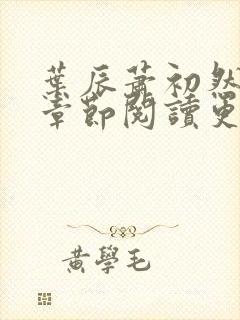 葉辰蕭初然
章節閱讀更
黃學毛